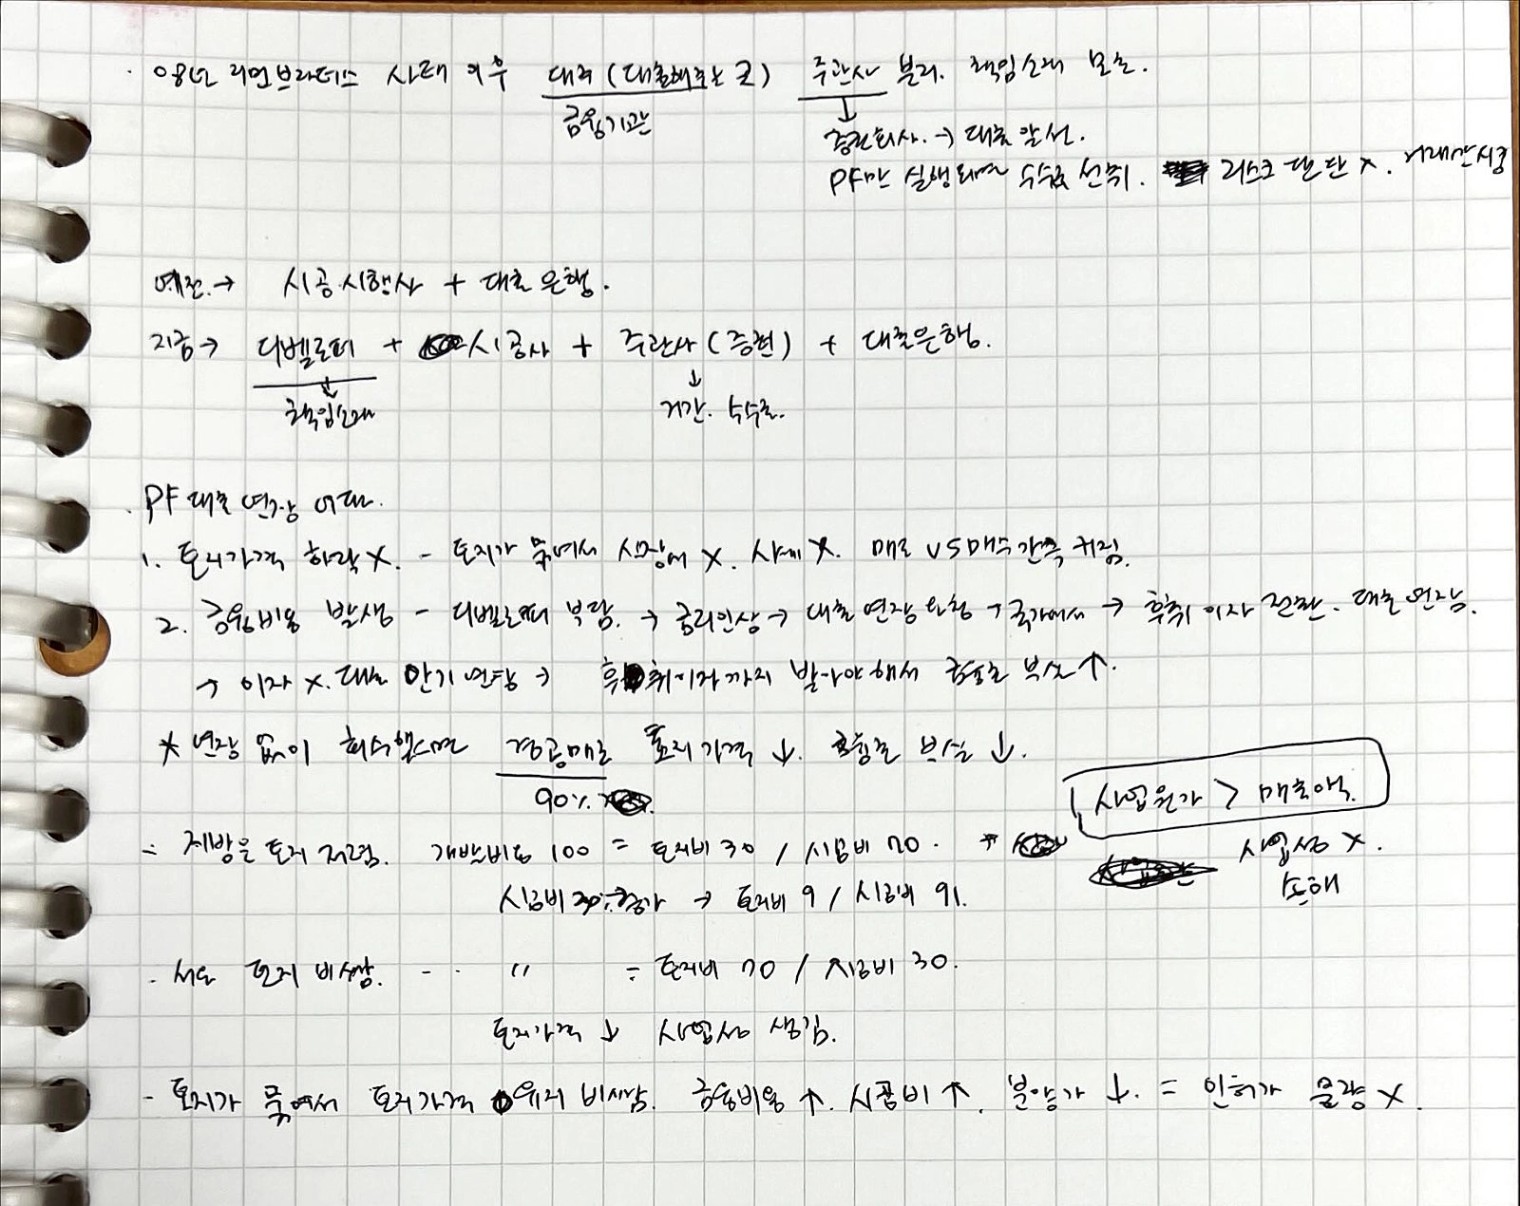 · 08년 리먼브라더스 사태 이후 대주 (대출해주는 곳) 주관사 분리. 책임소재 모호.
금융기관
↓
증권회사. → 대출 알선.
PF만 실행되면 수수료 선취. 리스크 판단 X.
예전 → 시공.시행사 + 대출은행.
지금 → 디벨로퍼 + 시공사 + 주관사 (증권) + 대출은행.
↓ ↓
책임소재 거간. 수수료.
· PF 대출 연장 이후.
1. 토지가격 하락 X. - 토지가 묶여서 시장에 X. 사례 X. 매도 VS 매수 간극 커짐.
2. 금융비용 발생 - 디벨로퍼 부담. → 금리인상 → 대출 연장 요청 → 국가에서 → 후취 이자 전환. 대출 연장.
→ 이자 X. 대출 만기 연장 → 후취이자까지 받아야해서 금융권 부실 ↑.
* 연장 없이 회수했으면 경공매로 토지가격 ↓. 금융권 부실 ↓.
90%
사업원가 > 매출액.
- 지방은 토지 저렴. 개발비용 100 = 토지비 30 / 시공비 70.
사업성 X.
손해
시공비 30% 증가 → 토지비 9 / 시공비 91.
- 서울 토지 비쌈. - - 〃 = 토지비 70 / 시공비 30.
토지가격 ↓ 사업성 생김.
- 토지가 묶여서 토지가격 유지 비쌈. 금융비용 ↑. 시공비 ↑. 분양가 ↓. = 인허가 물량 X.